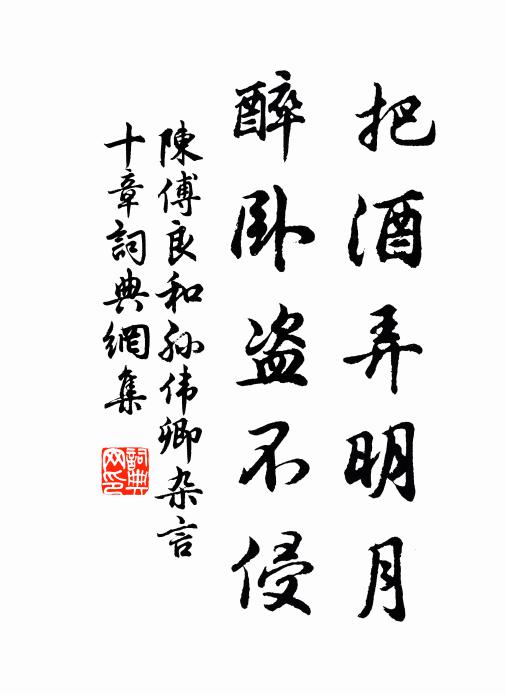 把酒弄明月
醉卧盗不侵
陳傅良和孙伟卿杂言
十章詞典網集
詞典网印